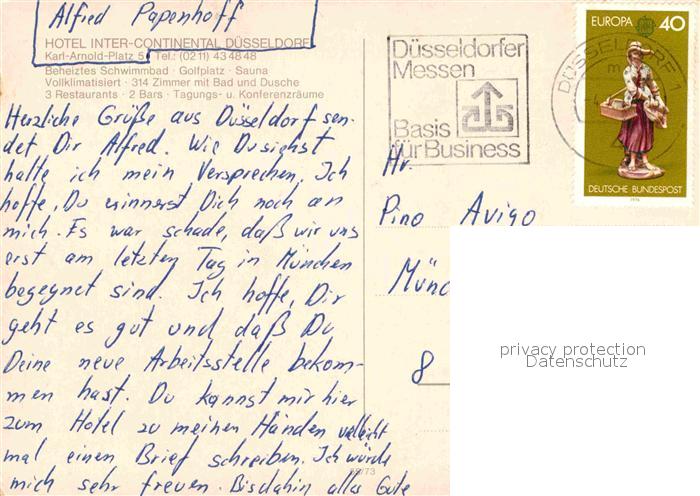 Alfred Papenhoff
HOTEL INTER-CONTINENTAL DÜSSELDORF
Karl-Arnold-Platz 5 · Tel.: (0211) 43 48 48
Beheiztes Schwimmbad · Golfplatz · Sauna
Vollklimatisiert · 314 Zimmer mit Bad und Dusche
3 Restaurants · 2 Bars · Tagungs- u. Konferenzräume
Herzliche Grüße aus Düsseldorf sen-
det Dir Alfred. Wie Du siehst
halte ich mein Versprechen. Ich
hoffe, Du erinnerst Dich noch an
mich. Es war schade, daß wir uns
erst am letzten Tag in München
begegnet sind. Ich hoffe, Dir
geht es gut und daß Du
Deine neue Arbeitsstelle bekom-
men hast. Du kannst mir hier
zum Hotel zu meinen Händen vielleicht
mal einen Brief schreiben. Ich würde
mich sehr freuen. Bis dahin alles Gute
55/73
Düsseldorfer
Messen
Basis
für Business
DÜSSELDORF 1
EUROPA 40
DEUTSCHE BUNDESPOST
1976
Hr.
Pino Avigo
Münc
8
privacy protection
Datenschutz